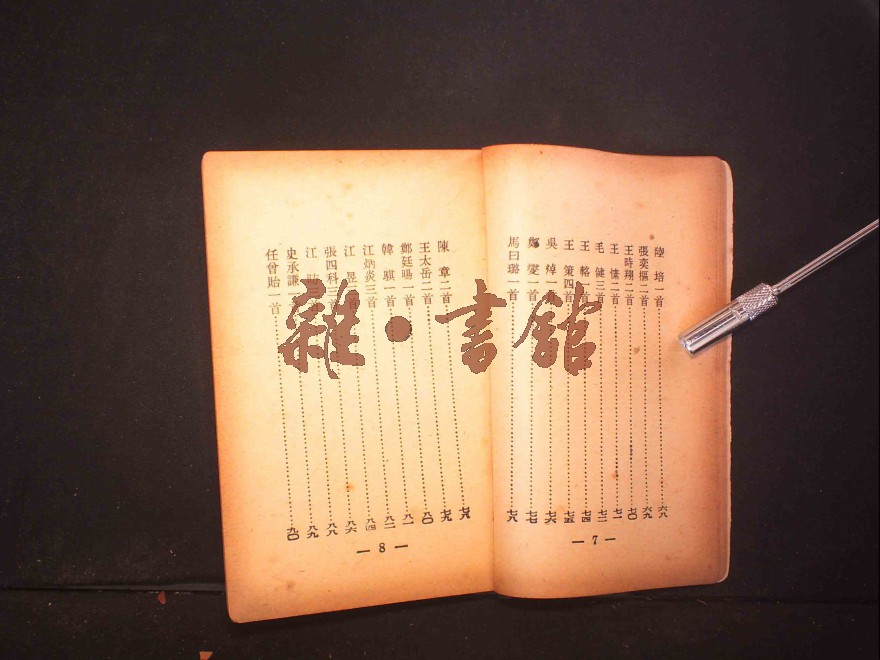 陸 培一首……六八
張奕樞二首……六九
王時翔二首……七〇
王 愫二首……七一
毛 健三首……七二
王 輅……七四
王 策四首……七五
吳 焯一首……七六
鄭 燮一首……七七
馬曰璐一首……七八
— 7 —
陳 章二首……七八
王太岳二首……七九
鄭廷暘一首……八〇
韓 騏一首……八一
江炳炎三首……八二
江 昱三首……八四
張四科三首……八六
江 昉三……八八
史承謙一……八九
任曾貽一首……九〇
— 8 —
雜·書館